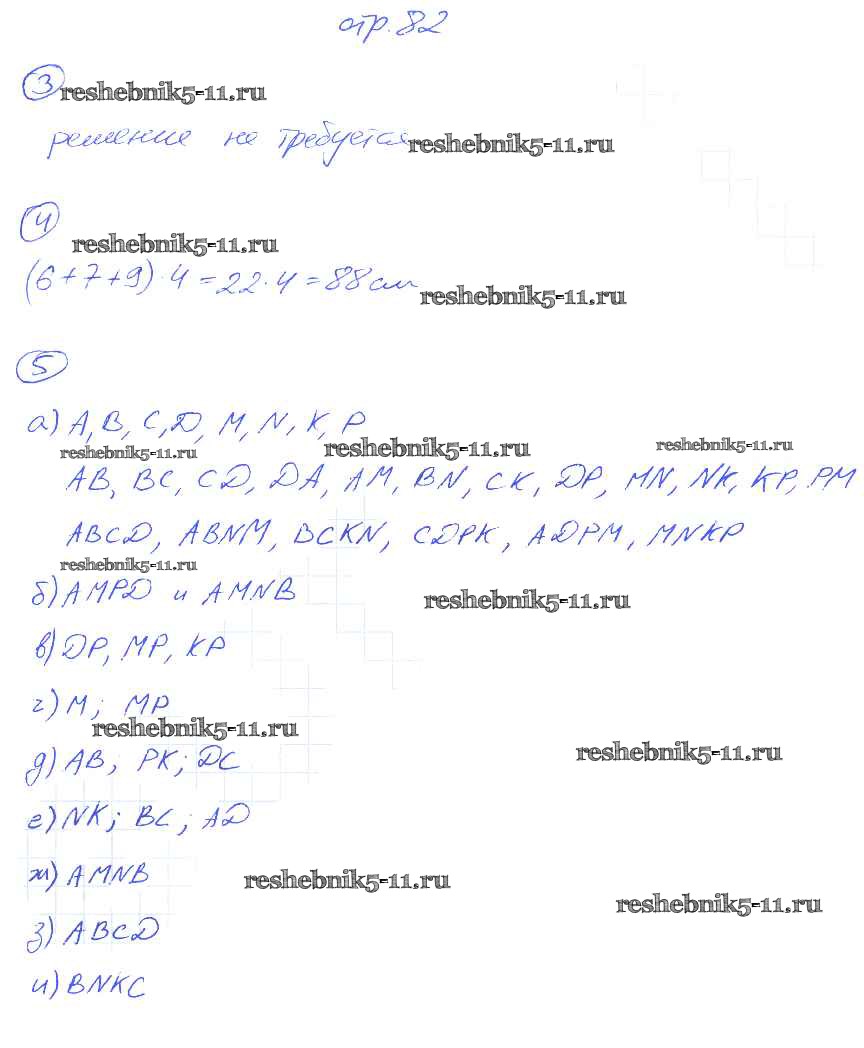 стр. 82
3 reshebnik5-11.ru
решение не требуется reshebnik5-11.ru
4
reshebnik5-11.ru
(6+7+9)·4=22·4=88см
reshebnik5-11.ru
5
а) A, B, C, D, M, N, K, P
reshebnik5-11.ru reshebnik5-11.ru reshebnik5-11.ru
AB, BC, CD, DA, AM, BN, CK, DP, MN, NK, KP, PM
ABCD, ABNM, BCKN, CDPK, ADPM, MNKP
reshebnik5-11.ru
б) AMPD и AMNB reshebnik5-11.ru
в) DP, MP, KP
г) M; MP
reshebnik5-11.ru
д) AB; PK; DC reshebnik5-11.ru
е) NK; BC; AD
ж) AMNB reshebnik5-11.ru
reshebnik5-11.ru
з) ABCD
и) BNKC